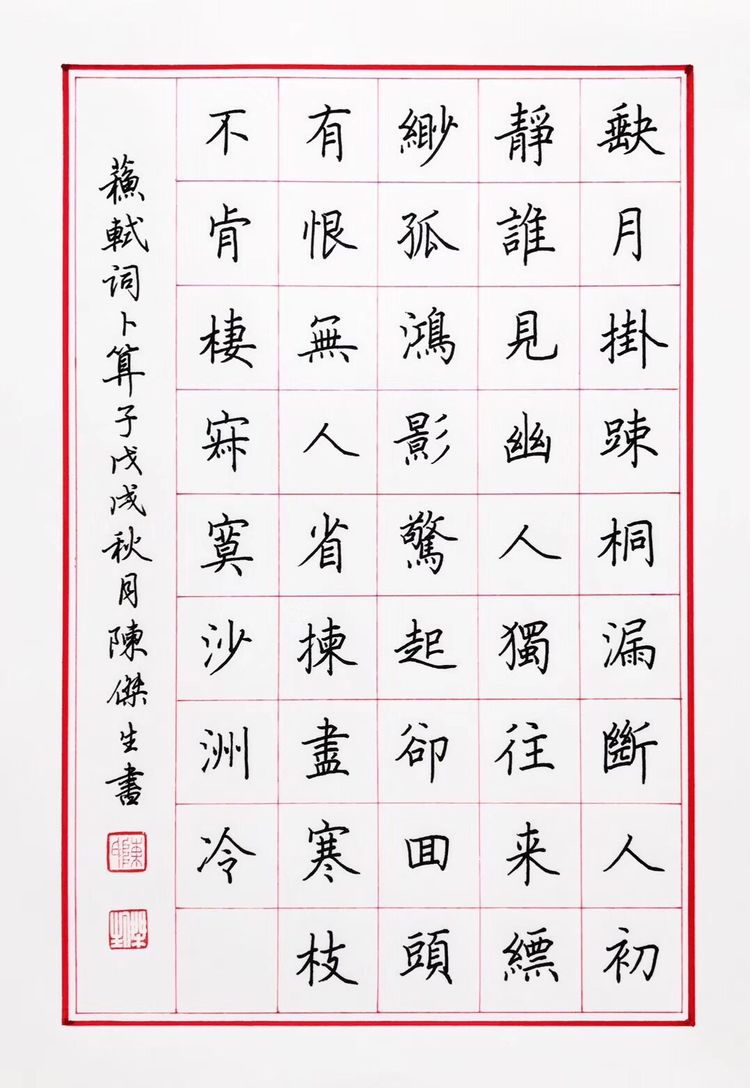 缺月掛踈桐漏斷人初
靜誰見幽人獨往来縹
緲孤鴻影驚起卻囬頭
有恨無人省揀盡寒枝
不肯棲寂寞沙洲冷
蘓軾词卜算子戊戌秋月陳傑生書